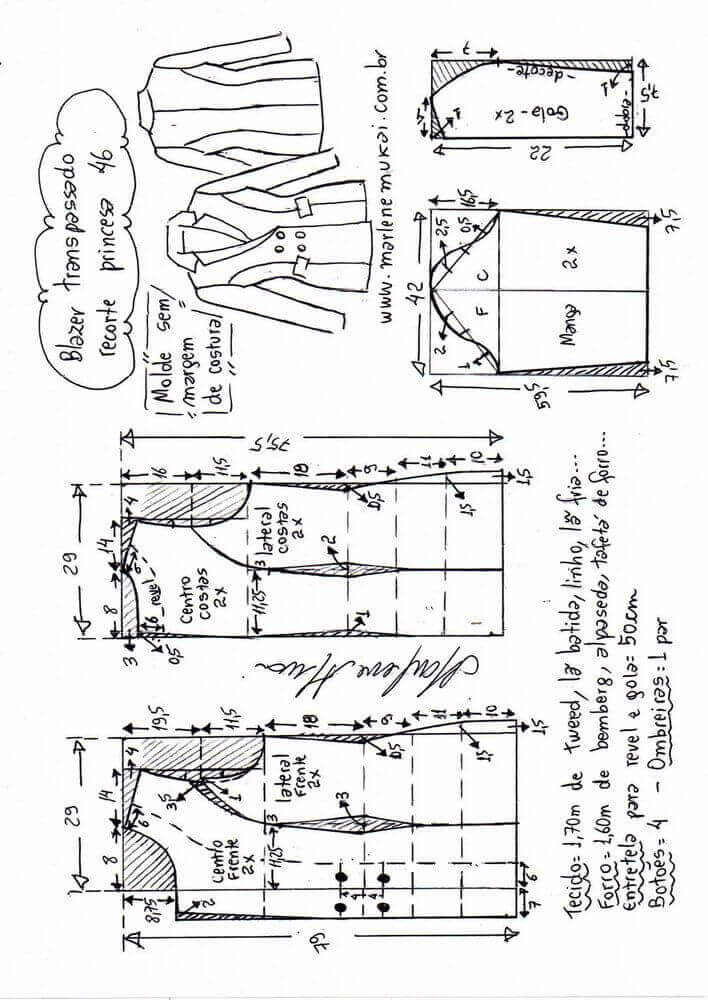 Blazer transpassado
recorte princesa 46
Molde sem
margem
de costura
www.marlenemukai.com.br
7
4
1
decote
Gola - 2x
dobra
1
7,5
22
42
16,5
2,5
0,5
F
C
2
1
Manga
2x
59,5
7,5
7,5
29
8
14
4
3
6
6_revel
0,5
Centro
costas
2x
lateral
costas
2x
11,25
3
2
1
16
11,5
18
9
11
10
0,5
1,5
1,5
75,5
29
8
14
4
6
8,75
2
3,5
1
Centro
Frente
2x
lateral
Frente
2x
11,25
3
3
19,5
11,5
18
9
11
10
0,5
1,5
1,5
4
4
4
7
6
79
Tecido= 1,70m de tweed, lã batida, linho, lã fria...
Forro= 1,60m de bemberg, alpaseda, tafetá de forro...
Entretela para revel e gola= 50cm
Botões= 4 - Ombreiras= 1 par